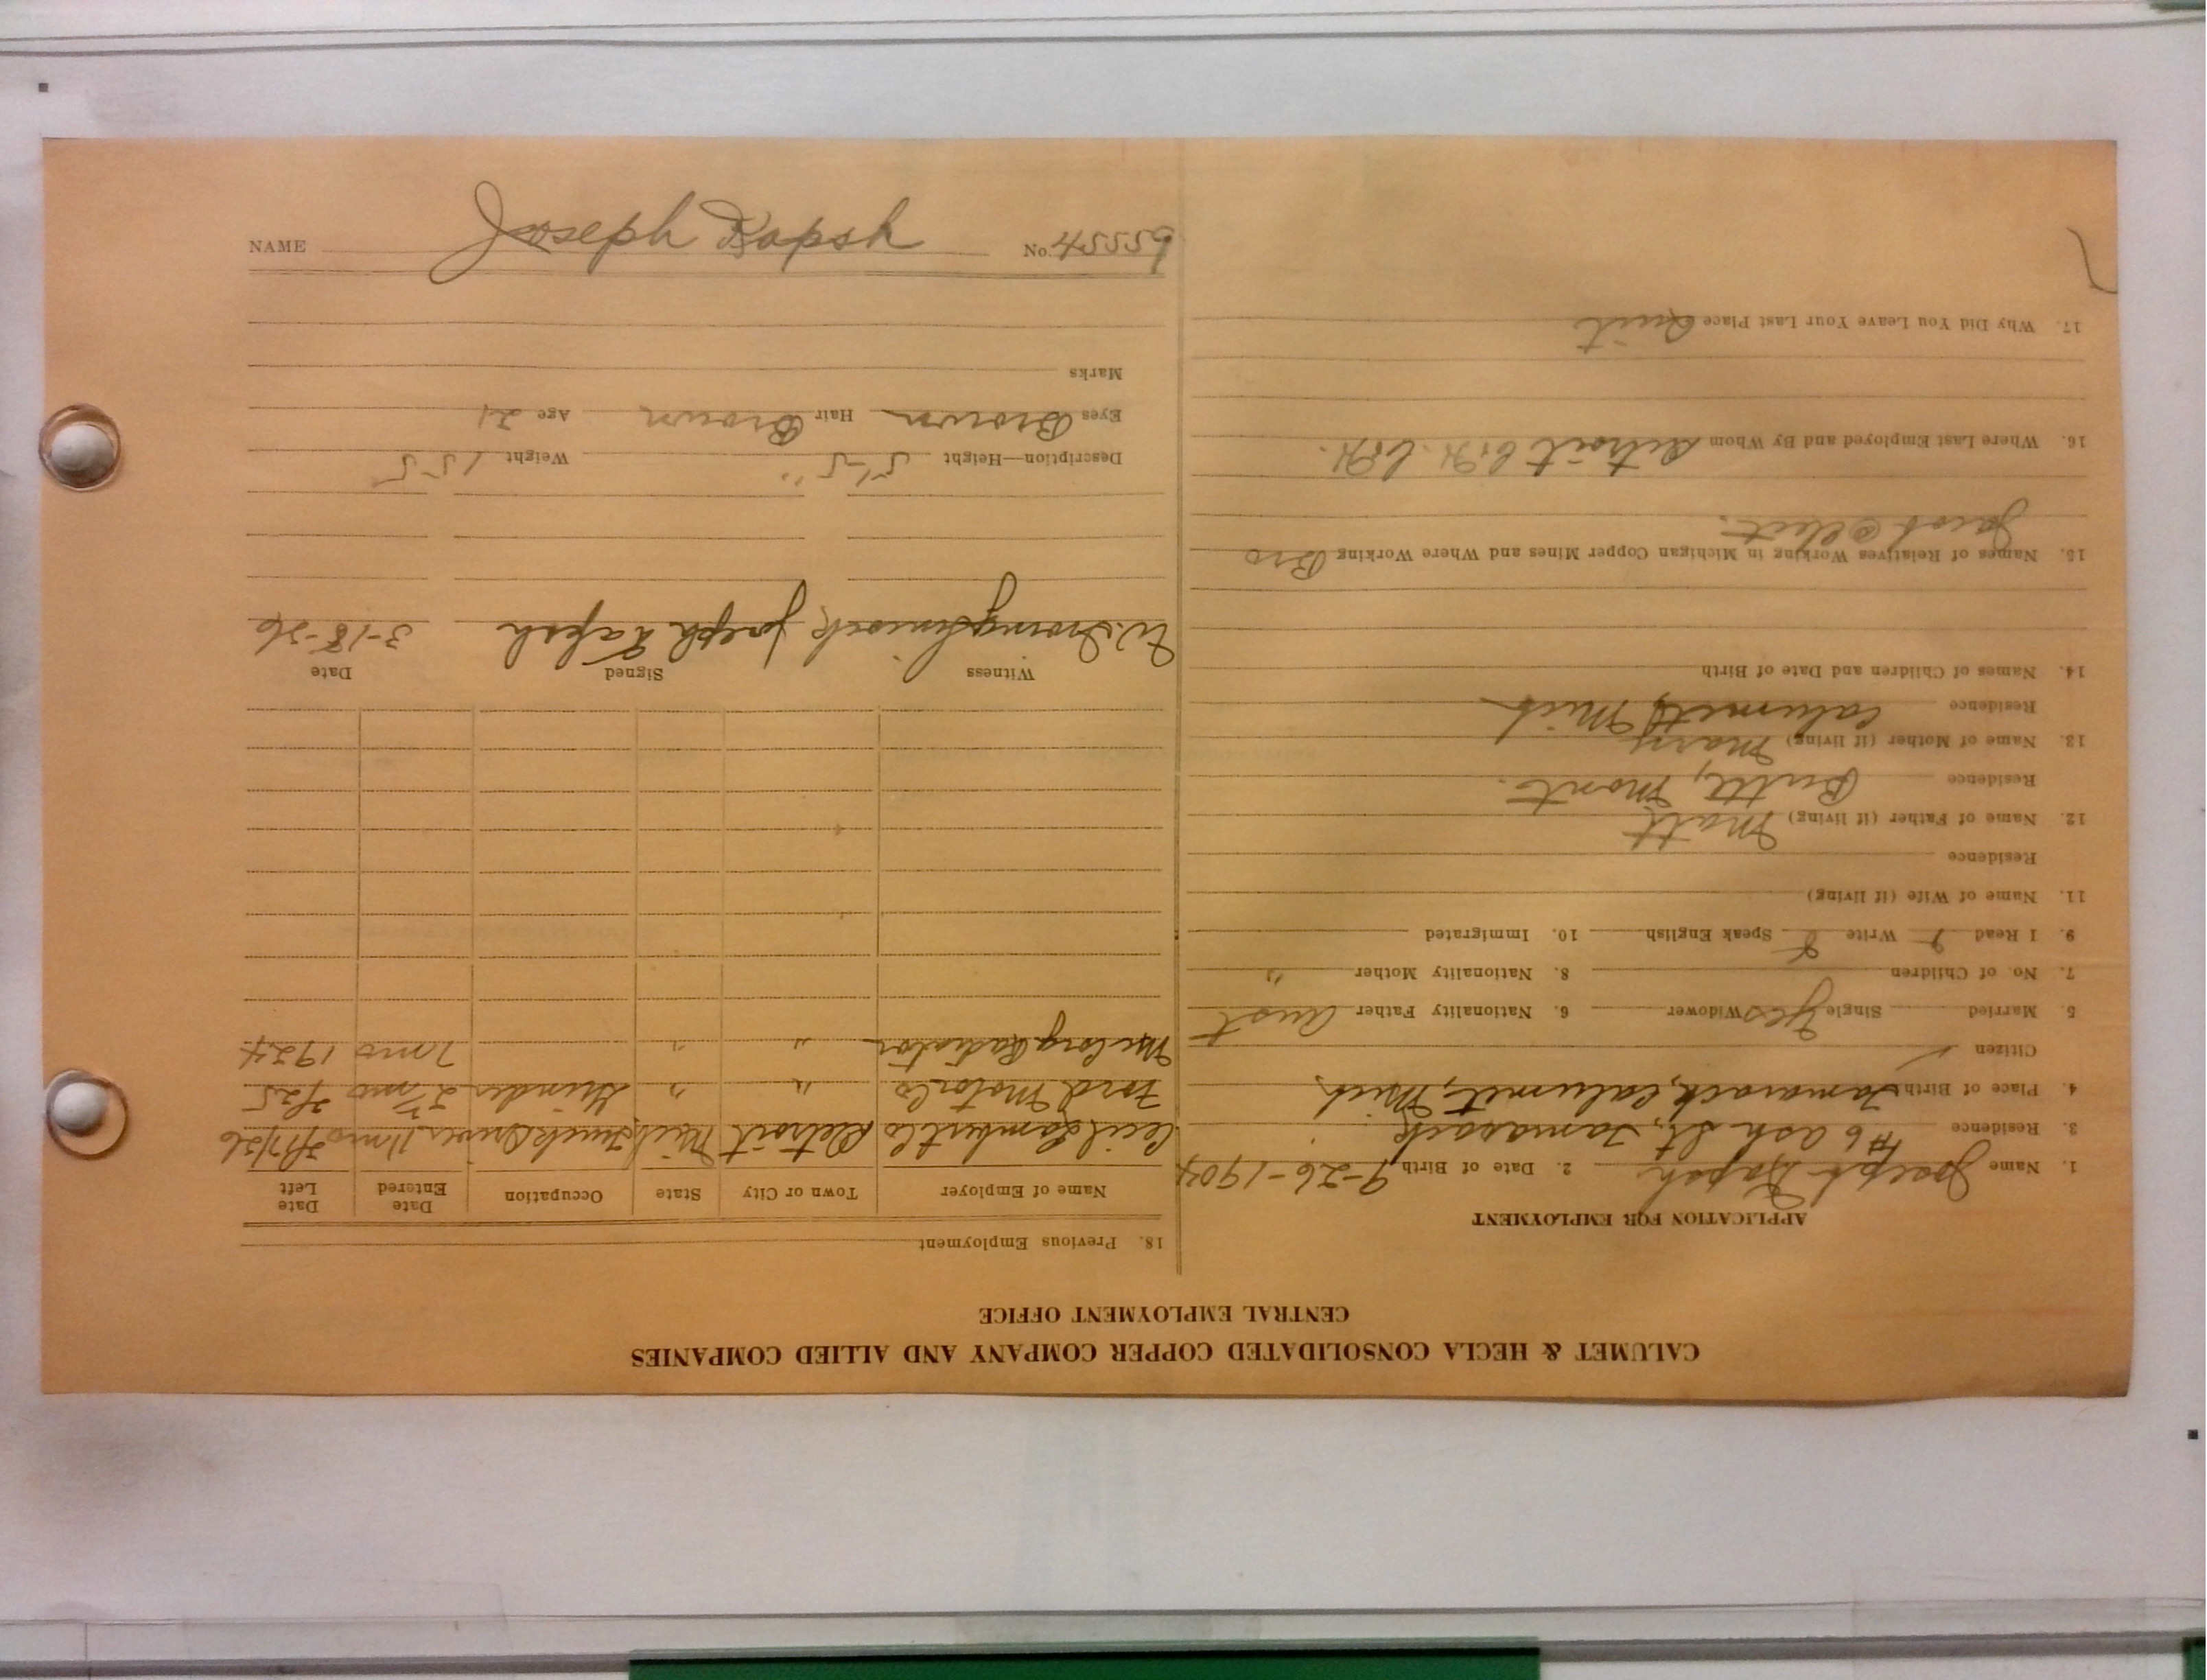 CALUMET & HECLA CONSOLIDATED COPPER COMPANY AND ALLIED COMPANIES
CENTRAL EMPLOYMENT OFFICE
APPLICATION FOR EMPLOYMENT
1. Name Joseph Kapsh 2. Date of Birth 9-26-1904
3. Residence #6 Ash St., Tamarack
4. Place of Birth Tamarack, Calumet, Mich
Citizen
5. Married Single Yes Widower 6. Nationality Father Aust
7. No. of Children 8. Nationality Mother "
9. I Read Write Speak English 10. Immigrated
11. Name of Wife (if living)
Residence
12. Name of Father (if living) Matt
Residence Butte, Mont.
13. Name of Mother (if living) Mary
Residence Calumet, Mich
14. Names of Children and Date of Birth
15. Names of Relatives Working in Michigan Copper Mines and Where Working Bro
Jacob @
16. Where Last Employed and By Whom Detroit
17. Why Did You Leave Your Last Place Quit
18. Previous Employment
Name of Employer Town or City State Occupation Date Entered Date Left
Cecil Lambert Co Detroit Mich Truck Driver 11 mo 3/1/26
Ford Motor Co " " Grinder mo
Radiator " " 7 mo 1924
Witness Signed Date
W. Joseph Kapsh 3-18-26
Description—Height 5'-5" Weight 155
Eyes Brown Hair Brown Age 21
Marks
NAME Joseph Kapsh No. 45559